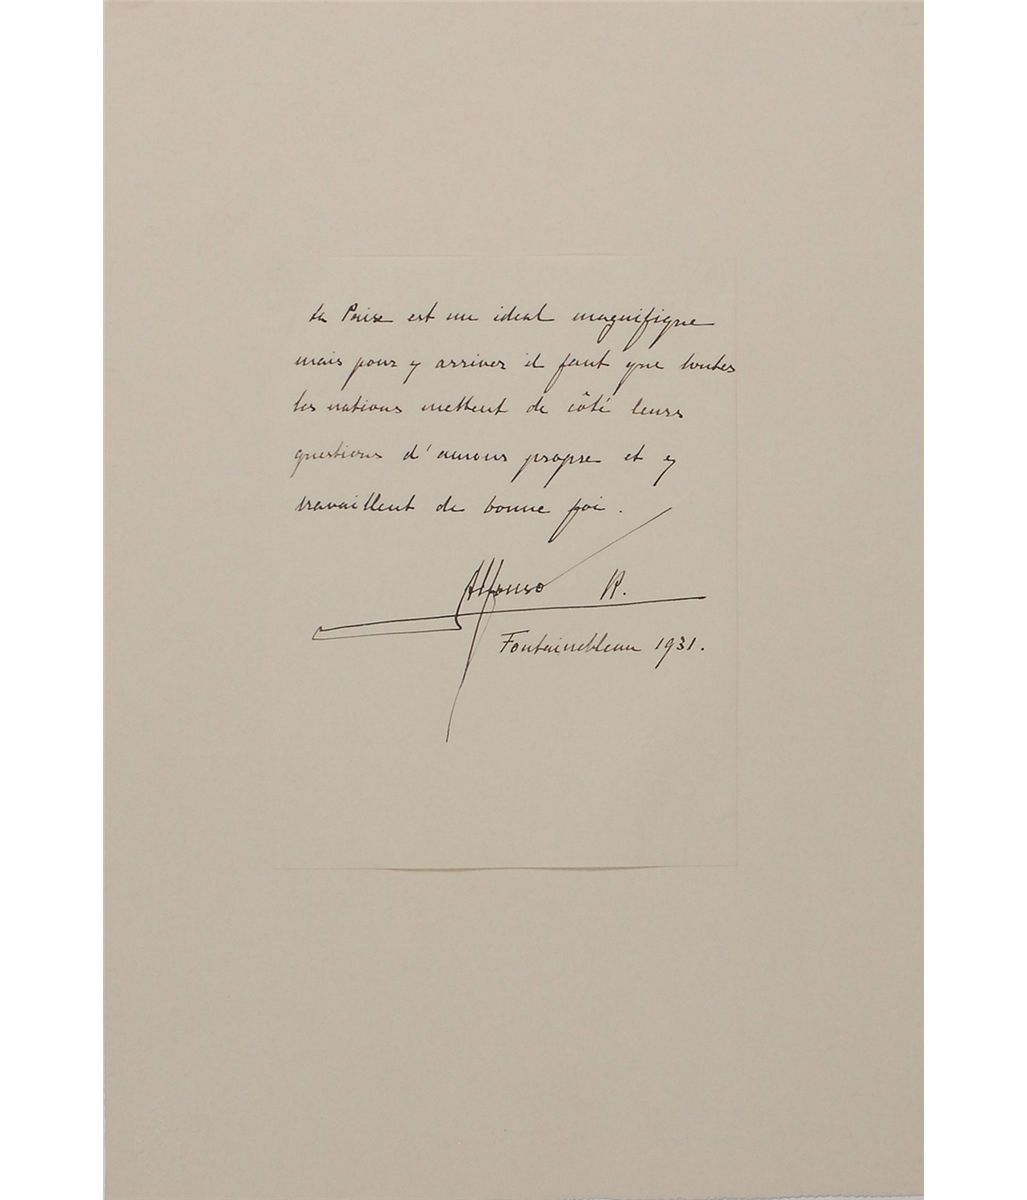 La Paix est un ideal magnifique
mais pour y arriver il faut que toutes
les nations mettent de côté leurs
questions d'amour propre et y
travaillent de bonne foi.
Alfonso R.
Fontainebleau 1931.